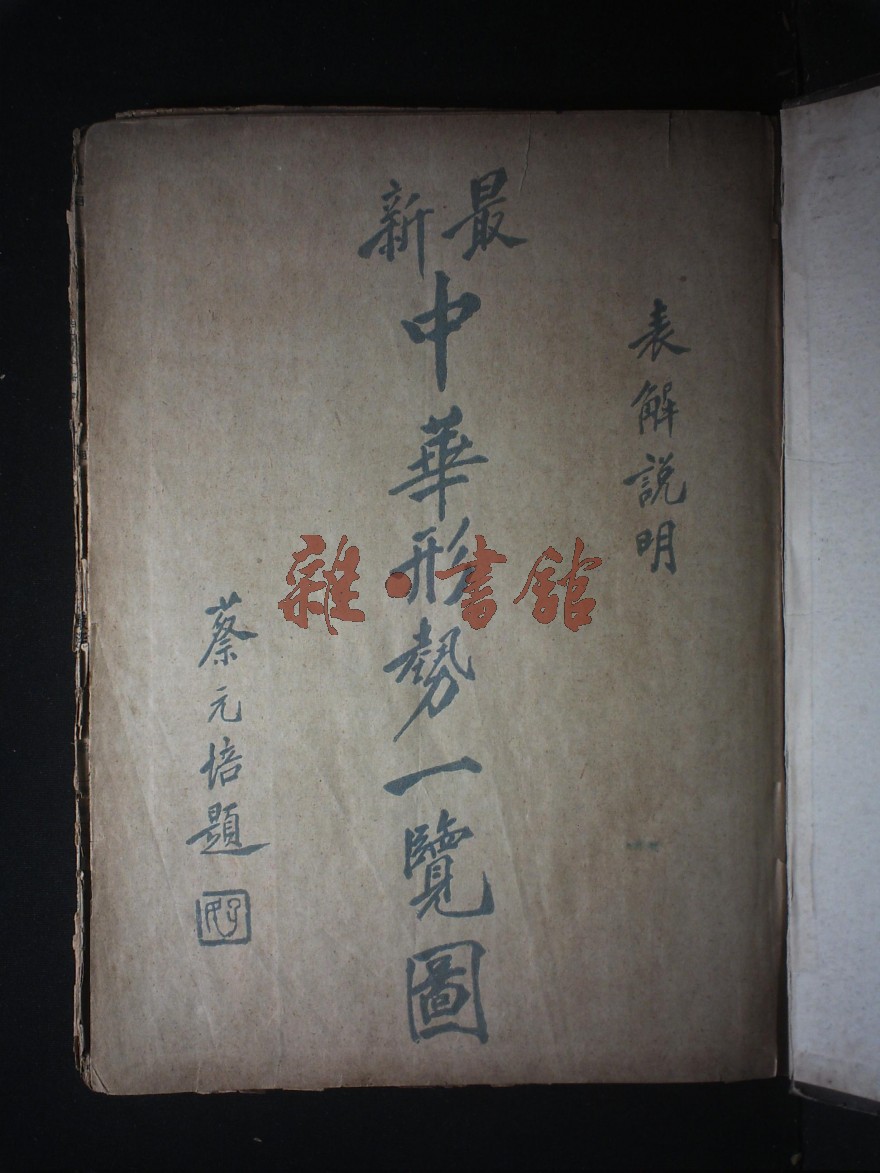 表解説明
最新
中華形勢一覽圖
蔡元培題
雜·書館